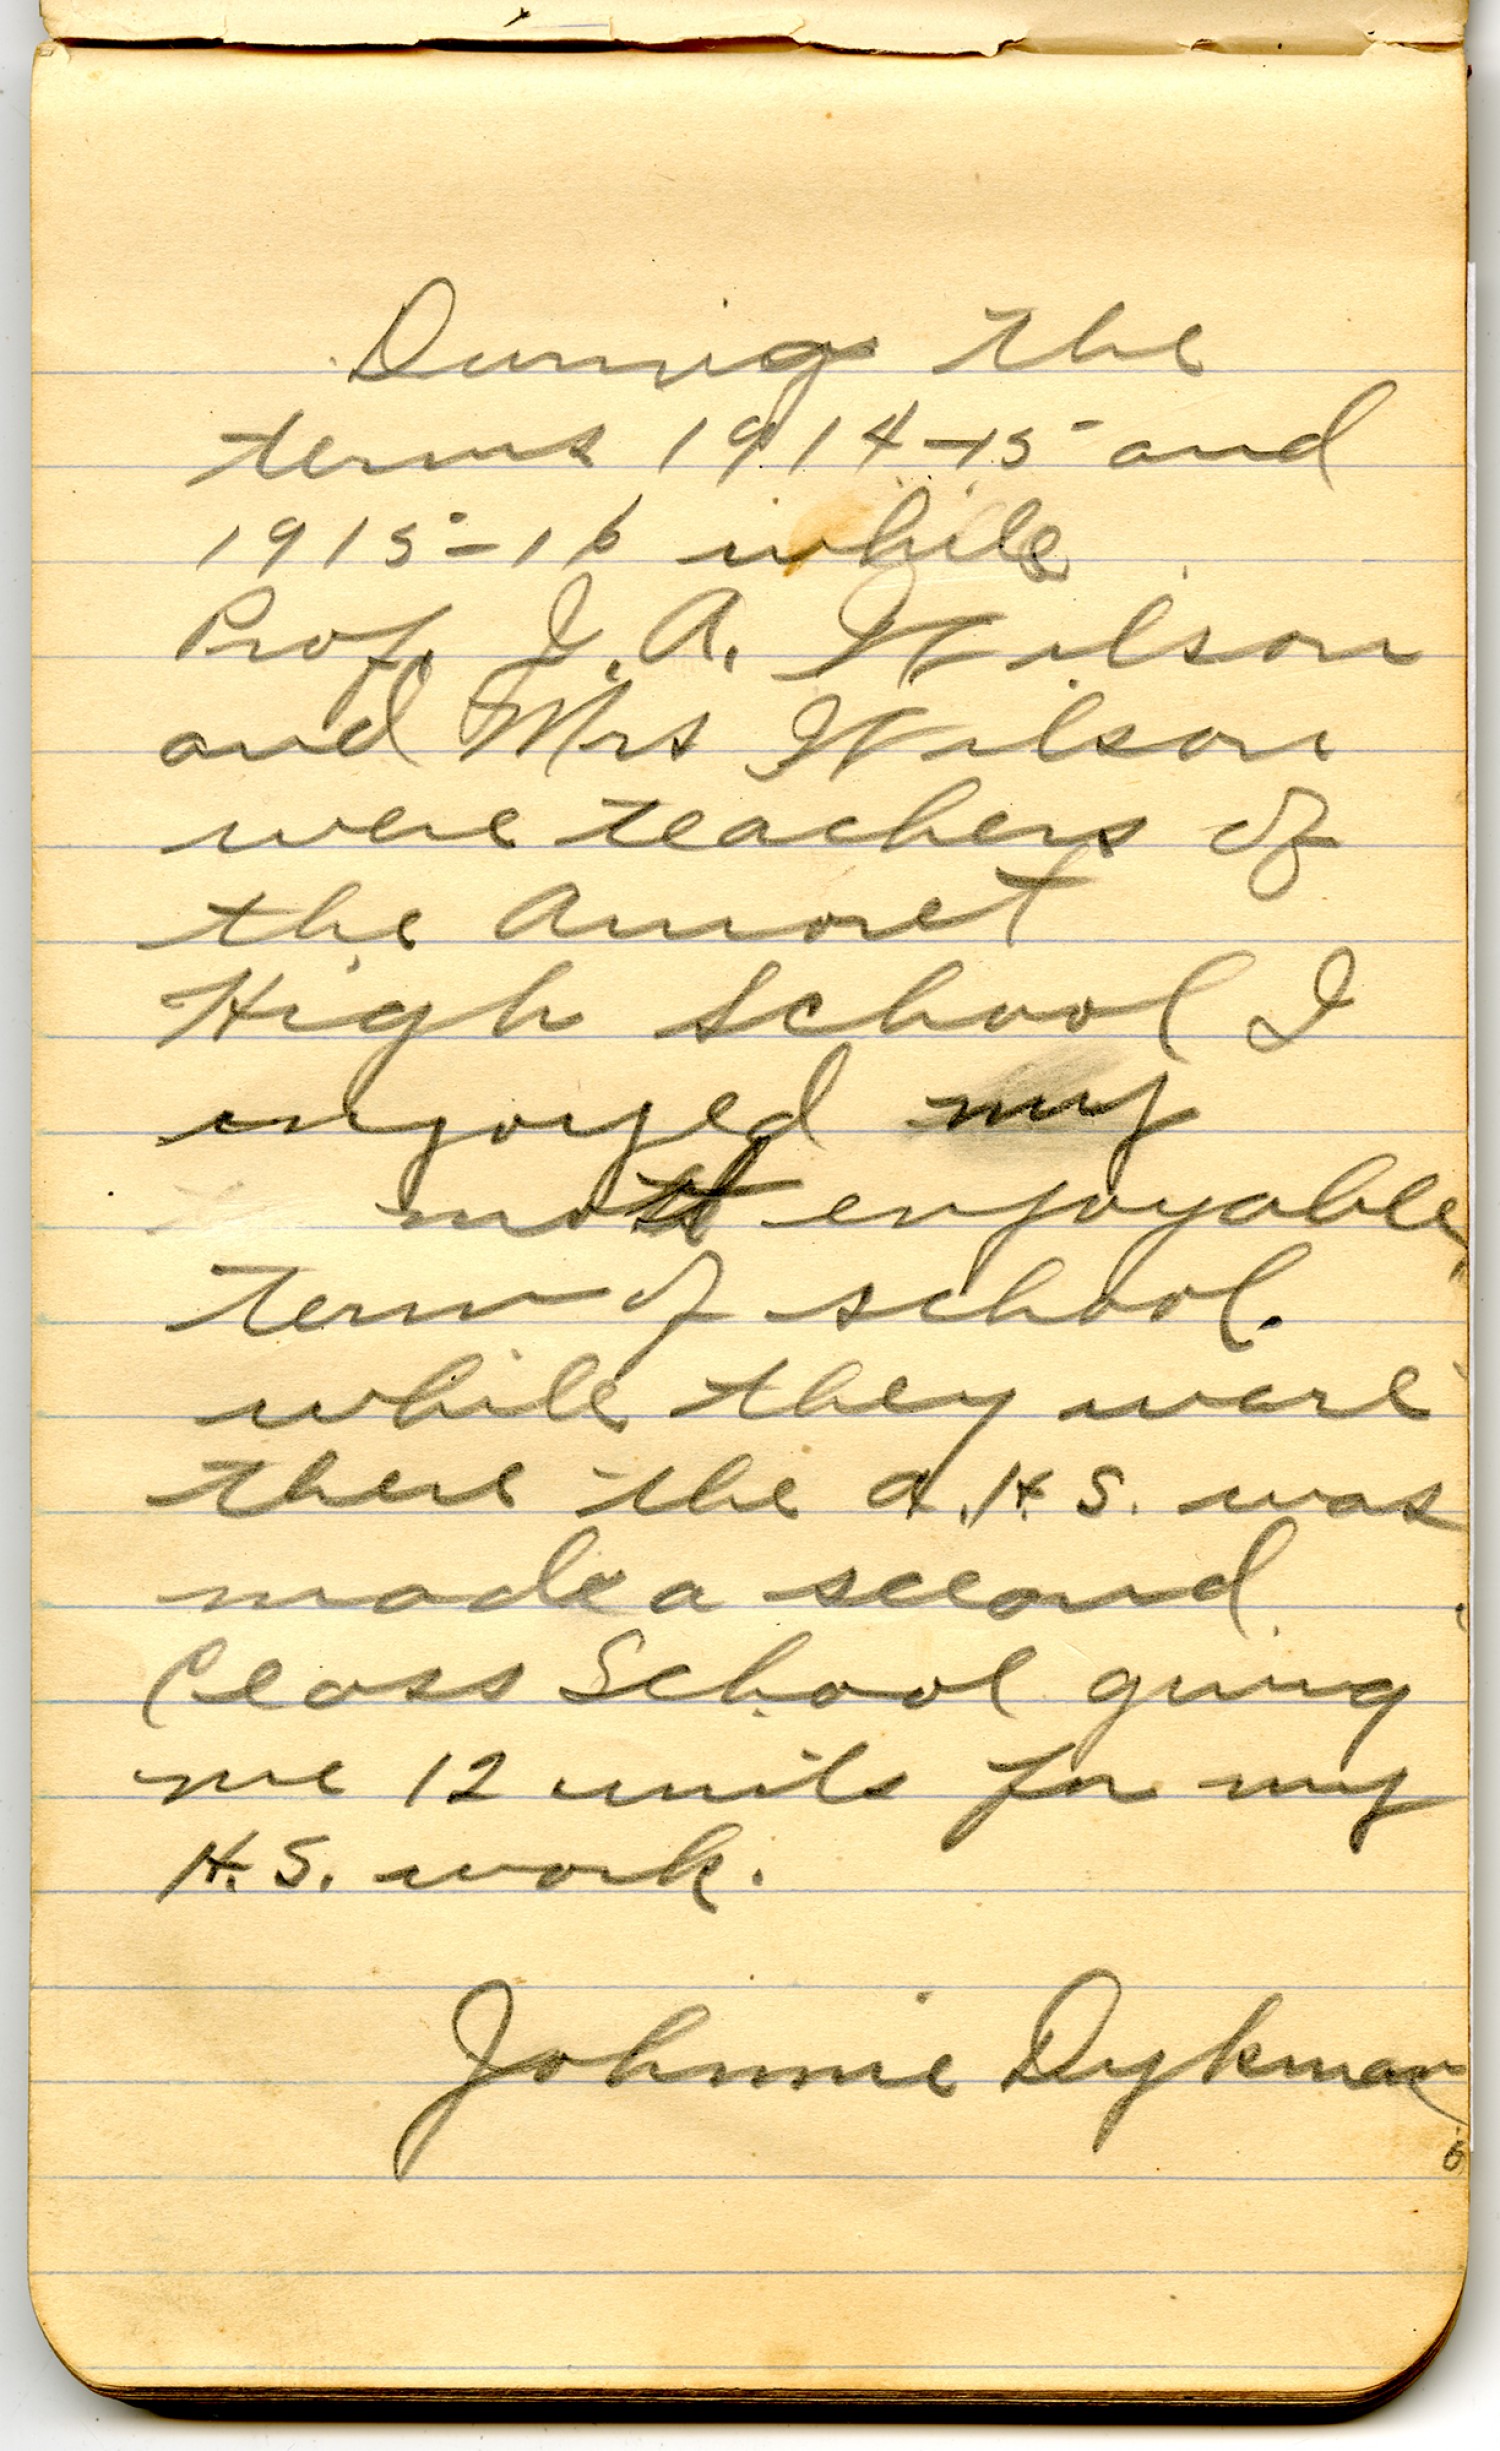 During the
terms 1914-15 and
1915-16 while
Prof. I. A. Wilson
and Mrs Wilson
were teachers of
the Amoret
High School I
enjoyed my
most enjoyable
term of school.
while they were
there the A.H.S. was
made a second
Class School giving
me 12 units for my
H.S. work.
Johnnie Dykman
6